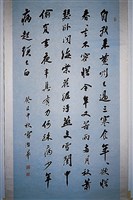 自我來黃州已過三寒食年年欲惜
春春去不容惜今年又苦雨兩月秋蕭
瑟臥聞海棠花泥污燕支雪闇中
偷負去夜半真有力何殊病少年
病起頭已白